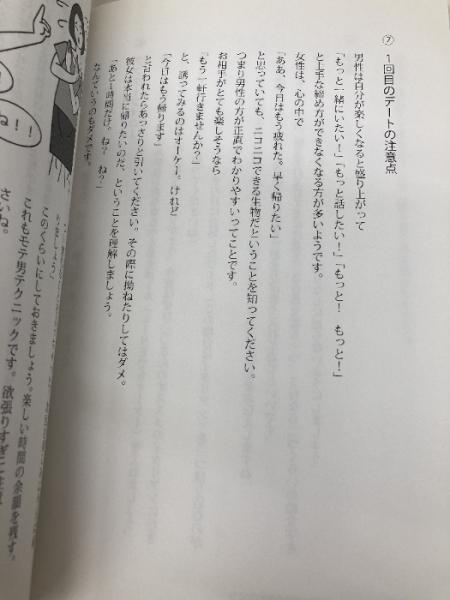 ⑦ 1回目のデートの注意点
男性は自分が楽しくなると盛り上がって
「もっと一緒にいたい！」「もっと話したい！」「もっと！ もっと！」
と上手な締め方ができなくなる方が多いようです。
女性は、心の中で
「ああ、今日はもう疲れた。早く帰りたい」
と思っていても、ニコニコできる生物だということを知ってください。
つまり男性の方が正直でわかりやすいってことです。
お相手がとても楽しそうなら
「もう一軒行きませんか？」
と、誘ってみるのはオーケー。けれど
「今日はもう帰ります」
と言われたらあっさりと引いてください。その際に拗ねたりしてはダメ。
彼女は本当に帰りたいのだ、ということを理解しましょう。
「あと1時間だけ。ね？ ね？」
なんていうのもダメです。
このくらいにしておきましょう。楽しい時間の余韻を残す。
これもモテ男テクニックです。欲張りすぎに注意
さいね。
ね!!